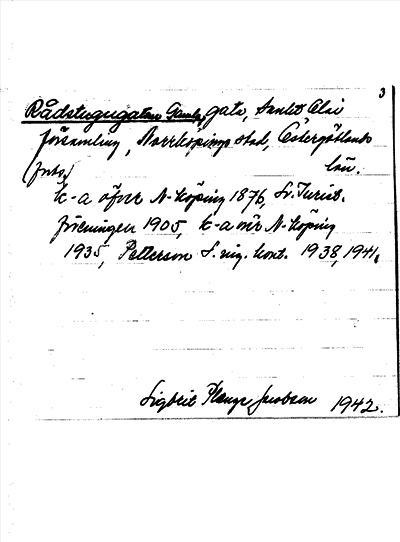 3
Rådstugugatan Gamla, gata, Sankt Olai
församling, Norrköpings stad, Östergötlands
län.
K-a öfver N-köping 1876, Sv. Turist-
föreningen 1905, K-a över N-köping
1935, Petterson S. ing. kont. 1938, 1941.
Sigbrit Plænge Jacobson 1942.